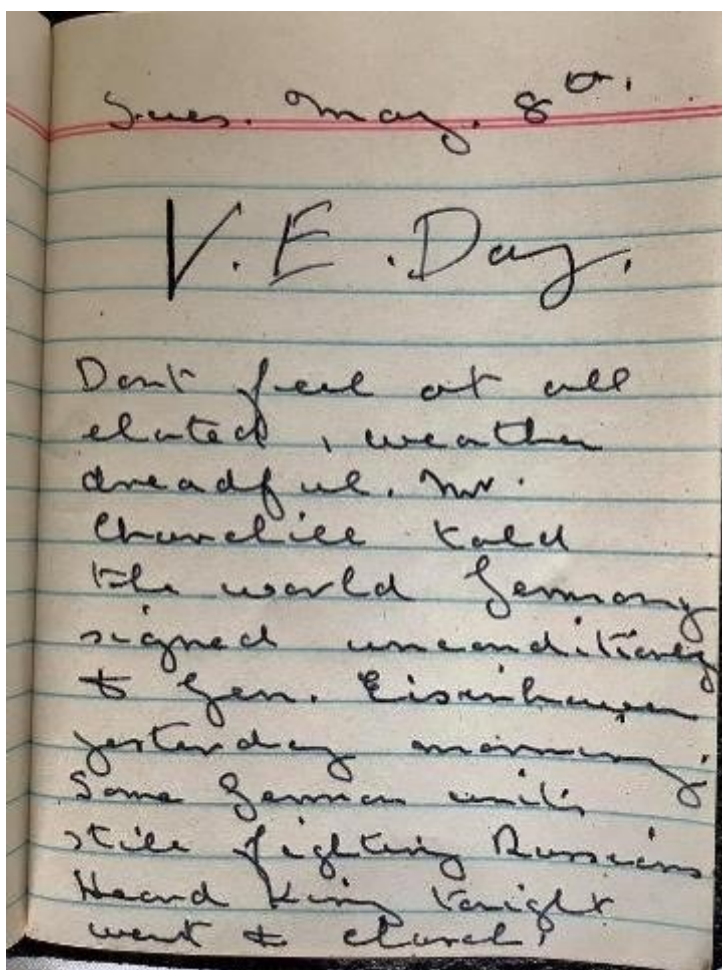 Tues. May. 8th.
V.E. Day.
Dont feel at all
elated, weather
dreadful. Mr.
Churchill told
the world Germany
signed unconditionaly
to Gen. Eisenhower
yesterday morning.
Some German units
still fighting Russians
Heard King tonight
went to church.